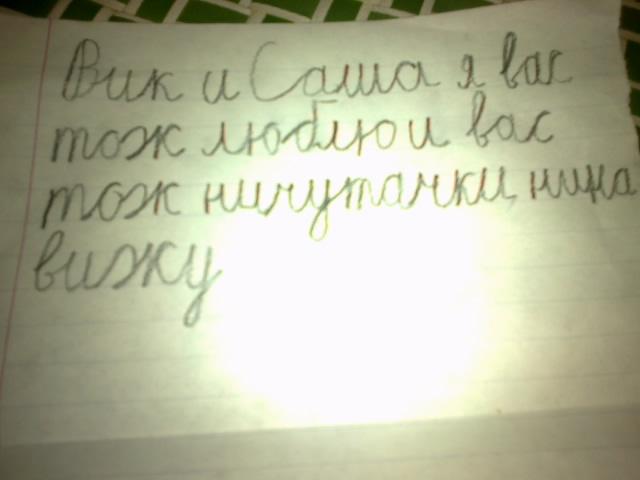 Вик и Саша я вас
тож люблю и вас
тож ничутачки нина
вижу